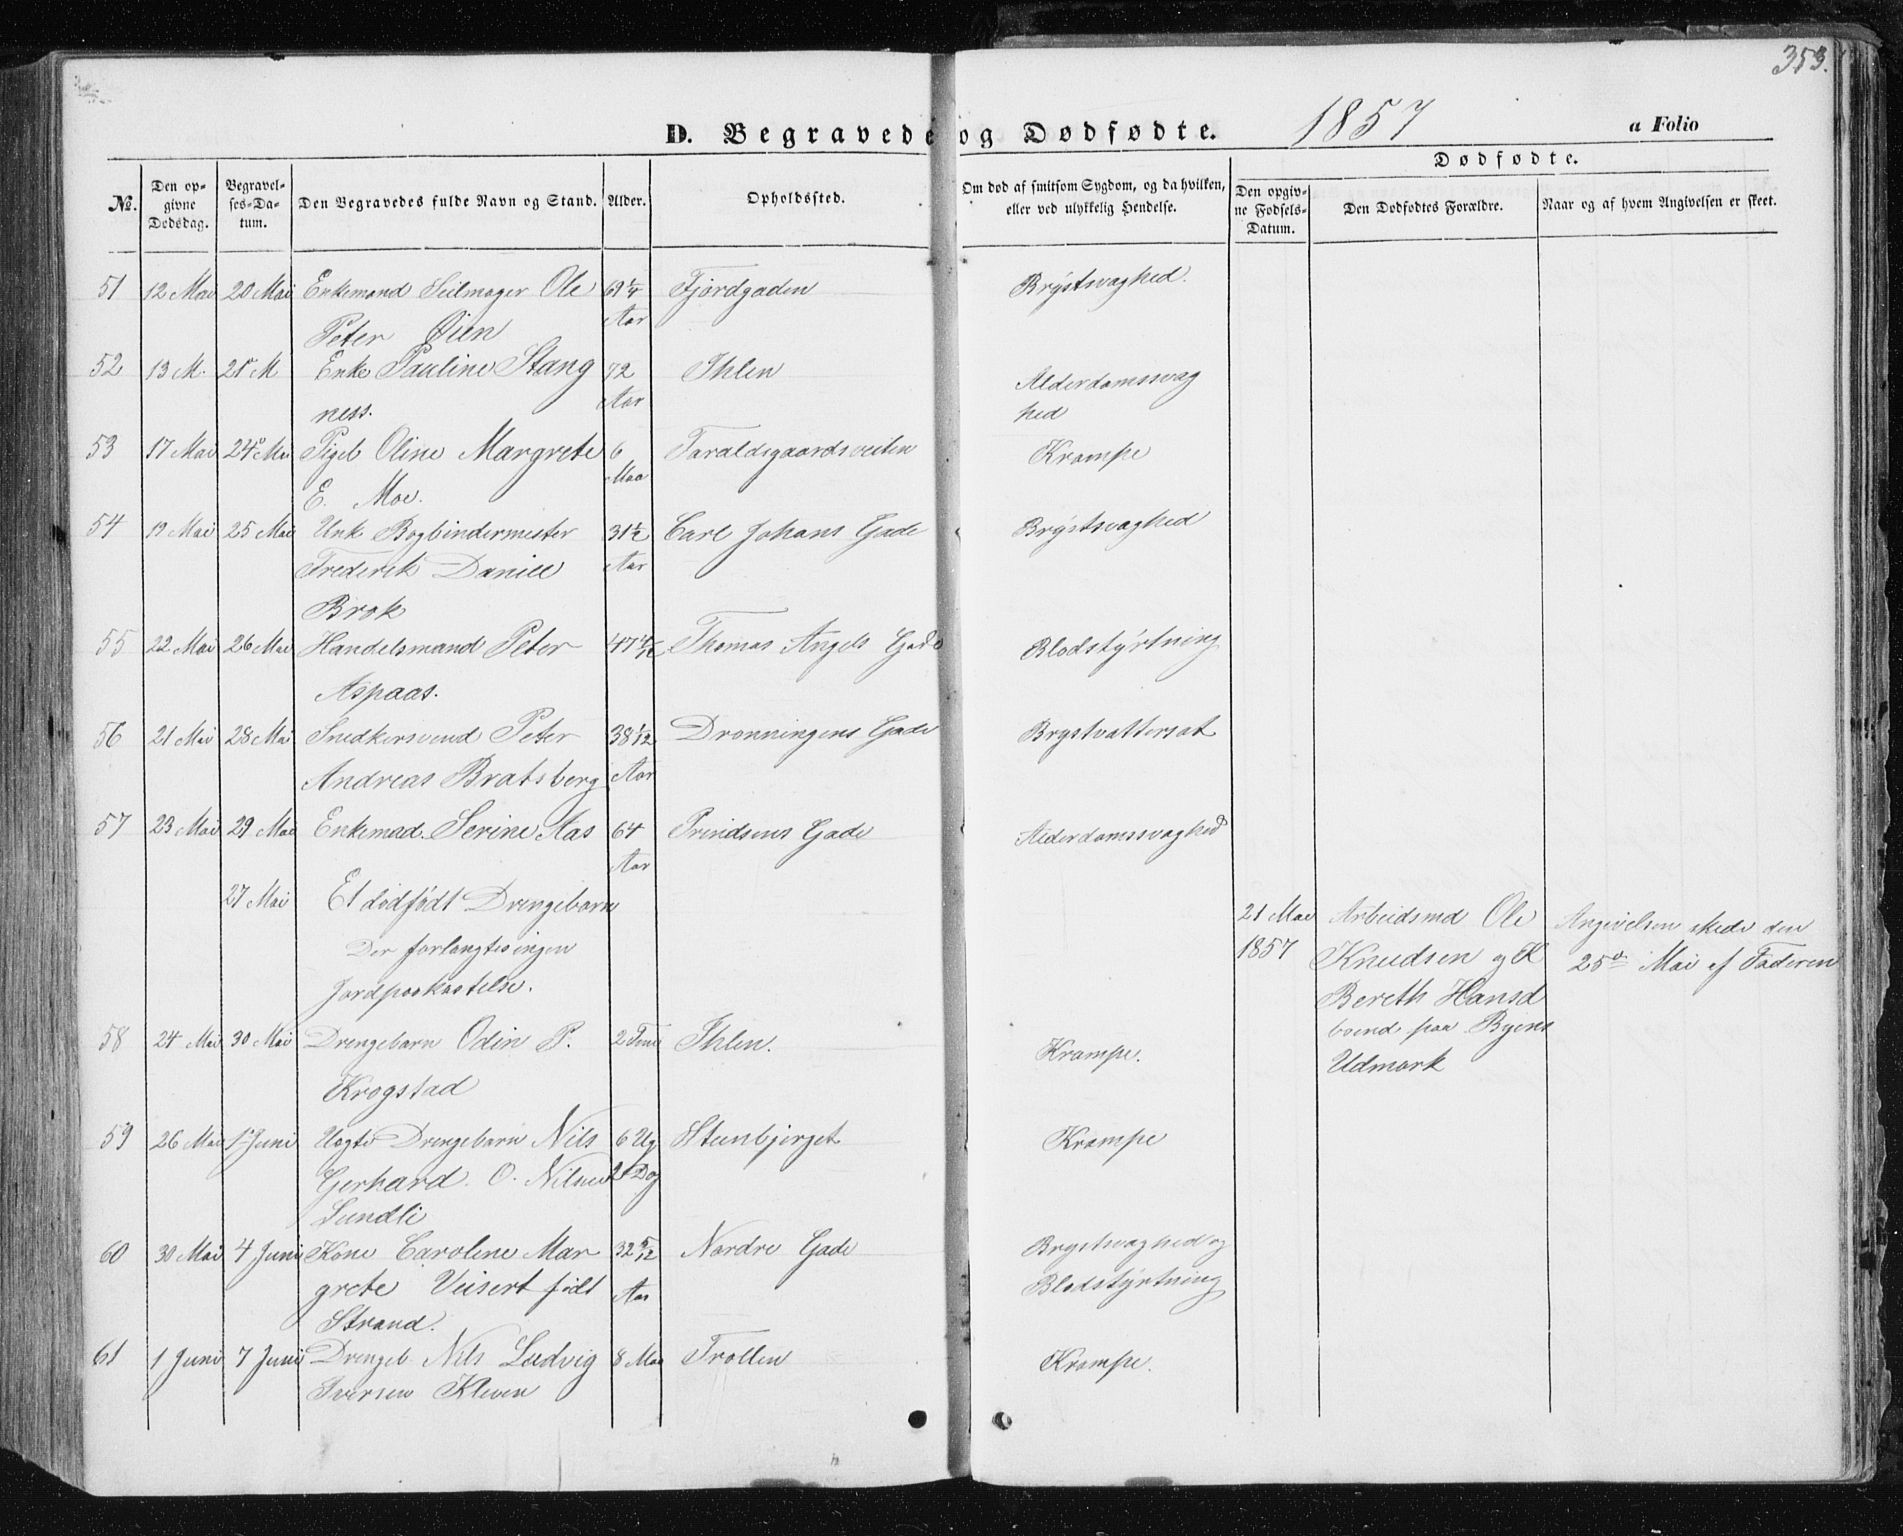 353.
D. Begravede og Dødfødte. 1857 a Folio
Dødfødte.
No. Den opgivne Dødsdag. Begravelses-Datum. Den Begravedes fulde Navn og Stand. Alder. Opholdssted. Om død af smitsom Sygdom, og da hvilken, eller ved ulykkelig Hendelse. Den opgivne Fødsels-Datum. Den Dødfødtes Forældre. Naar og af hvem Angivelsen er skeet.
51 12 Mai 20 Mai Enkemand Seilmager Ole 69 1/4 Fjordgaden Brÿstsvaghed.
Peter Øien Aar
52 13 M. 21 M Enke Pauline Stang 72 Ihlen Alderdomssvag
ness. Aar hed
53 17 Mai 24 Mai Pigeb Oline Margrete 6 Taraldsgaardsveiten Krampe
E. Moe. Maa
54 19 Mai 25 Mai Unk Bogbindermester 31 1/2 Carl Johans Gade Brÿstsvaghed
Frederik Daniel Aar
Brok
55 22 Mai 26 Mai Handelsmand Peter 47 4/12 Thomas Angels Gade Blodstÿrtning
Aspaas.
56 21 Mai 28 Mai Snedkersvend Peter 38 1/12 Dronningens Gade Brystvattersot
Andreas Bratsberg Aar
57 23 Mai 29 Mai Enkemad. Serine Aas 64 Prindsens Gade Alderdomssvaghed
Aar
27 Mai Et dødfødt Drengebarn 21 Mai Arbeidsmd Ole Angivelsen skede den
Der forlangtes ingen 1857 Knudsen og K 25de Mai af Faderen
Jordpaakastelse. Bereth Hansd
boend paa Byens
58 24 Mai 30 Mai Drengebarn Odin P. 2 Timer Ihlen. Krampe. Udmark
Krogstad
59 26 Mai 1 Juni Uægte Drengebarn Nils 6 Ug Steenbjerget Krampe
Gerhard. O. Nilsen Dag
Sundli
60 30 Mai 4 Juni Kone Caroline Mar 32 5/12 Nordre Gade Brystsvaghed og
grete Veisert født Aar Blodstÿrtning
Strand.
61 1 Juni 7 Juni Drengeb. Nils Ludvig 8 Maa Trollen Krampe.
Iversen Kleven